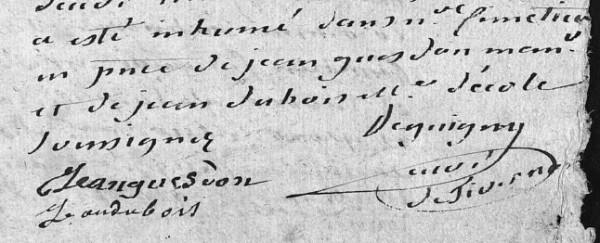 a esté inhumé dans n.re simetiere
en pnce de jean guesdon man.r
et de jean dubois M.e d'école
soussignes Deguigny
Jean guesdon curé
Jean dubois de Giverny